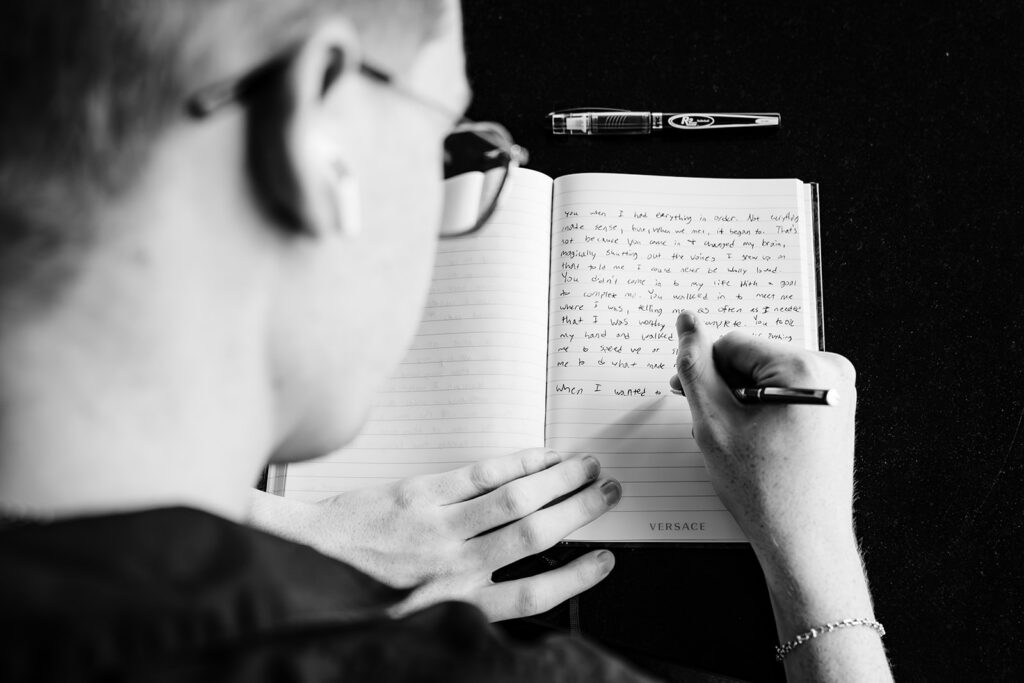 You when I had everything in order. Not everything
made sense, but, when we met, it began to. That's
not because you came in & changed my brain,
magically shutting out the voices I grew up on
that told me I could never be wholly loved.
You didn't come in to my life with a goal
to complete me. You walked in to meet me
where I was, telling me as often as I needed
that I was worthy complete. You took
my hand and walked pushing
me to speed up or
me to do what made
When I wanted to
VERSACE